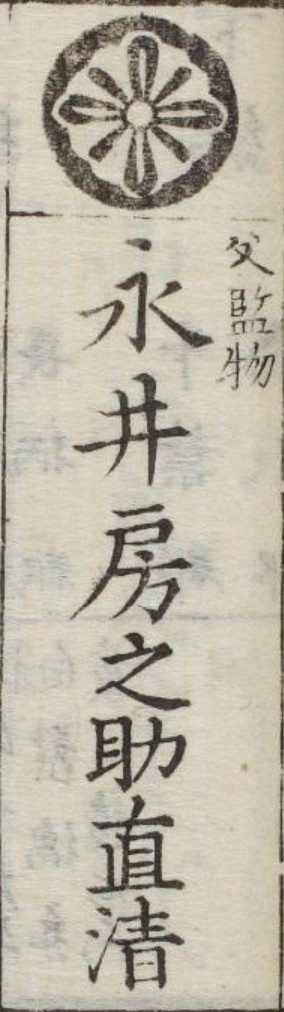 父監物
永井房之助直清